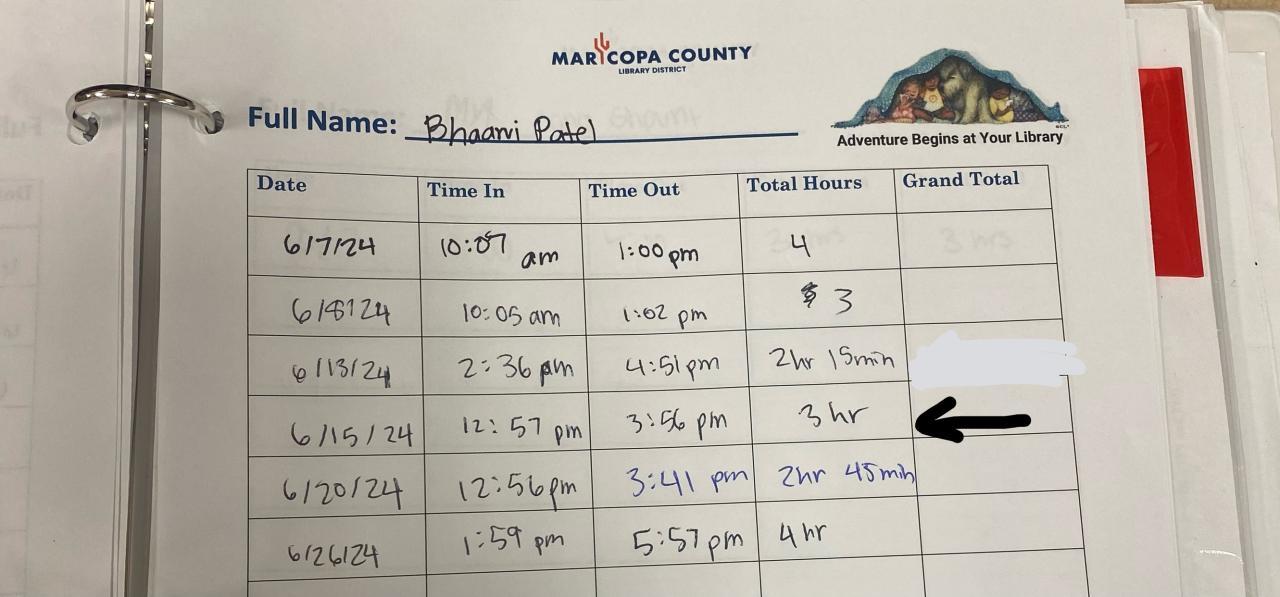 MARICOPA COUNTY
LIBRARY DISTRICT
Full Name: Bhaarvi Patel
Adventure Begins at Your Library
Date Time In Time Out Total Hours Grand Total
6/7/24 10:07 am 1:00 pm 4
6/8/24 10:05 am 1:02 pm 3
6/13/24 2:36 pm 4:51 pm 2hr 15min
6/15/24 12:57 pm 3:56 pm 3 hr
6/20/24 12:56 pm 3:41 pm 2hr 45min
6/26/24 1:59 pm 5:57 pm 4 hr